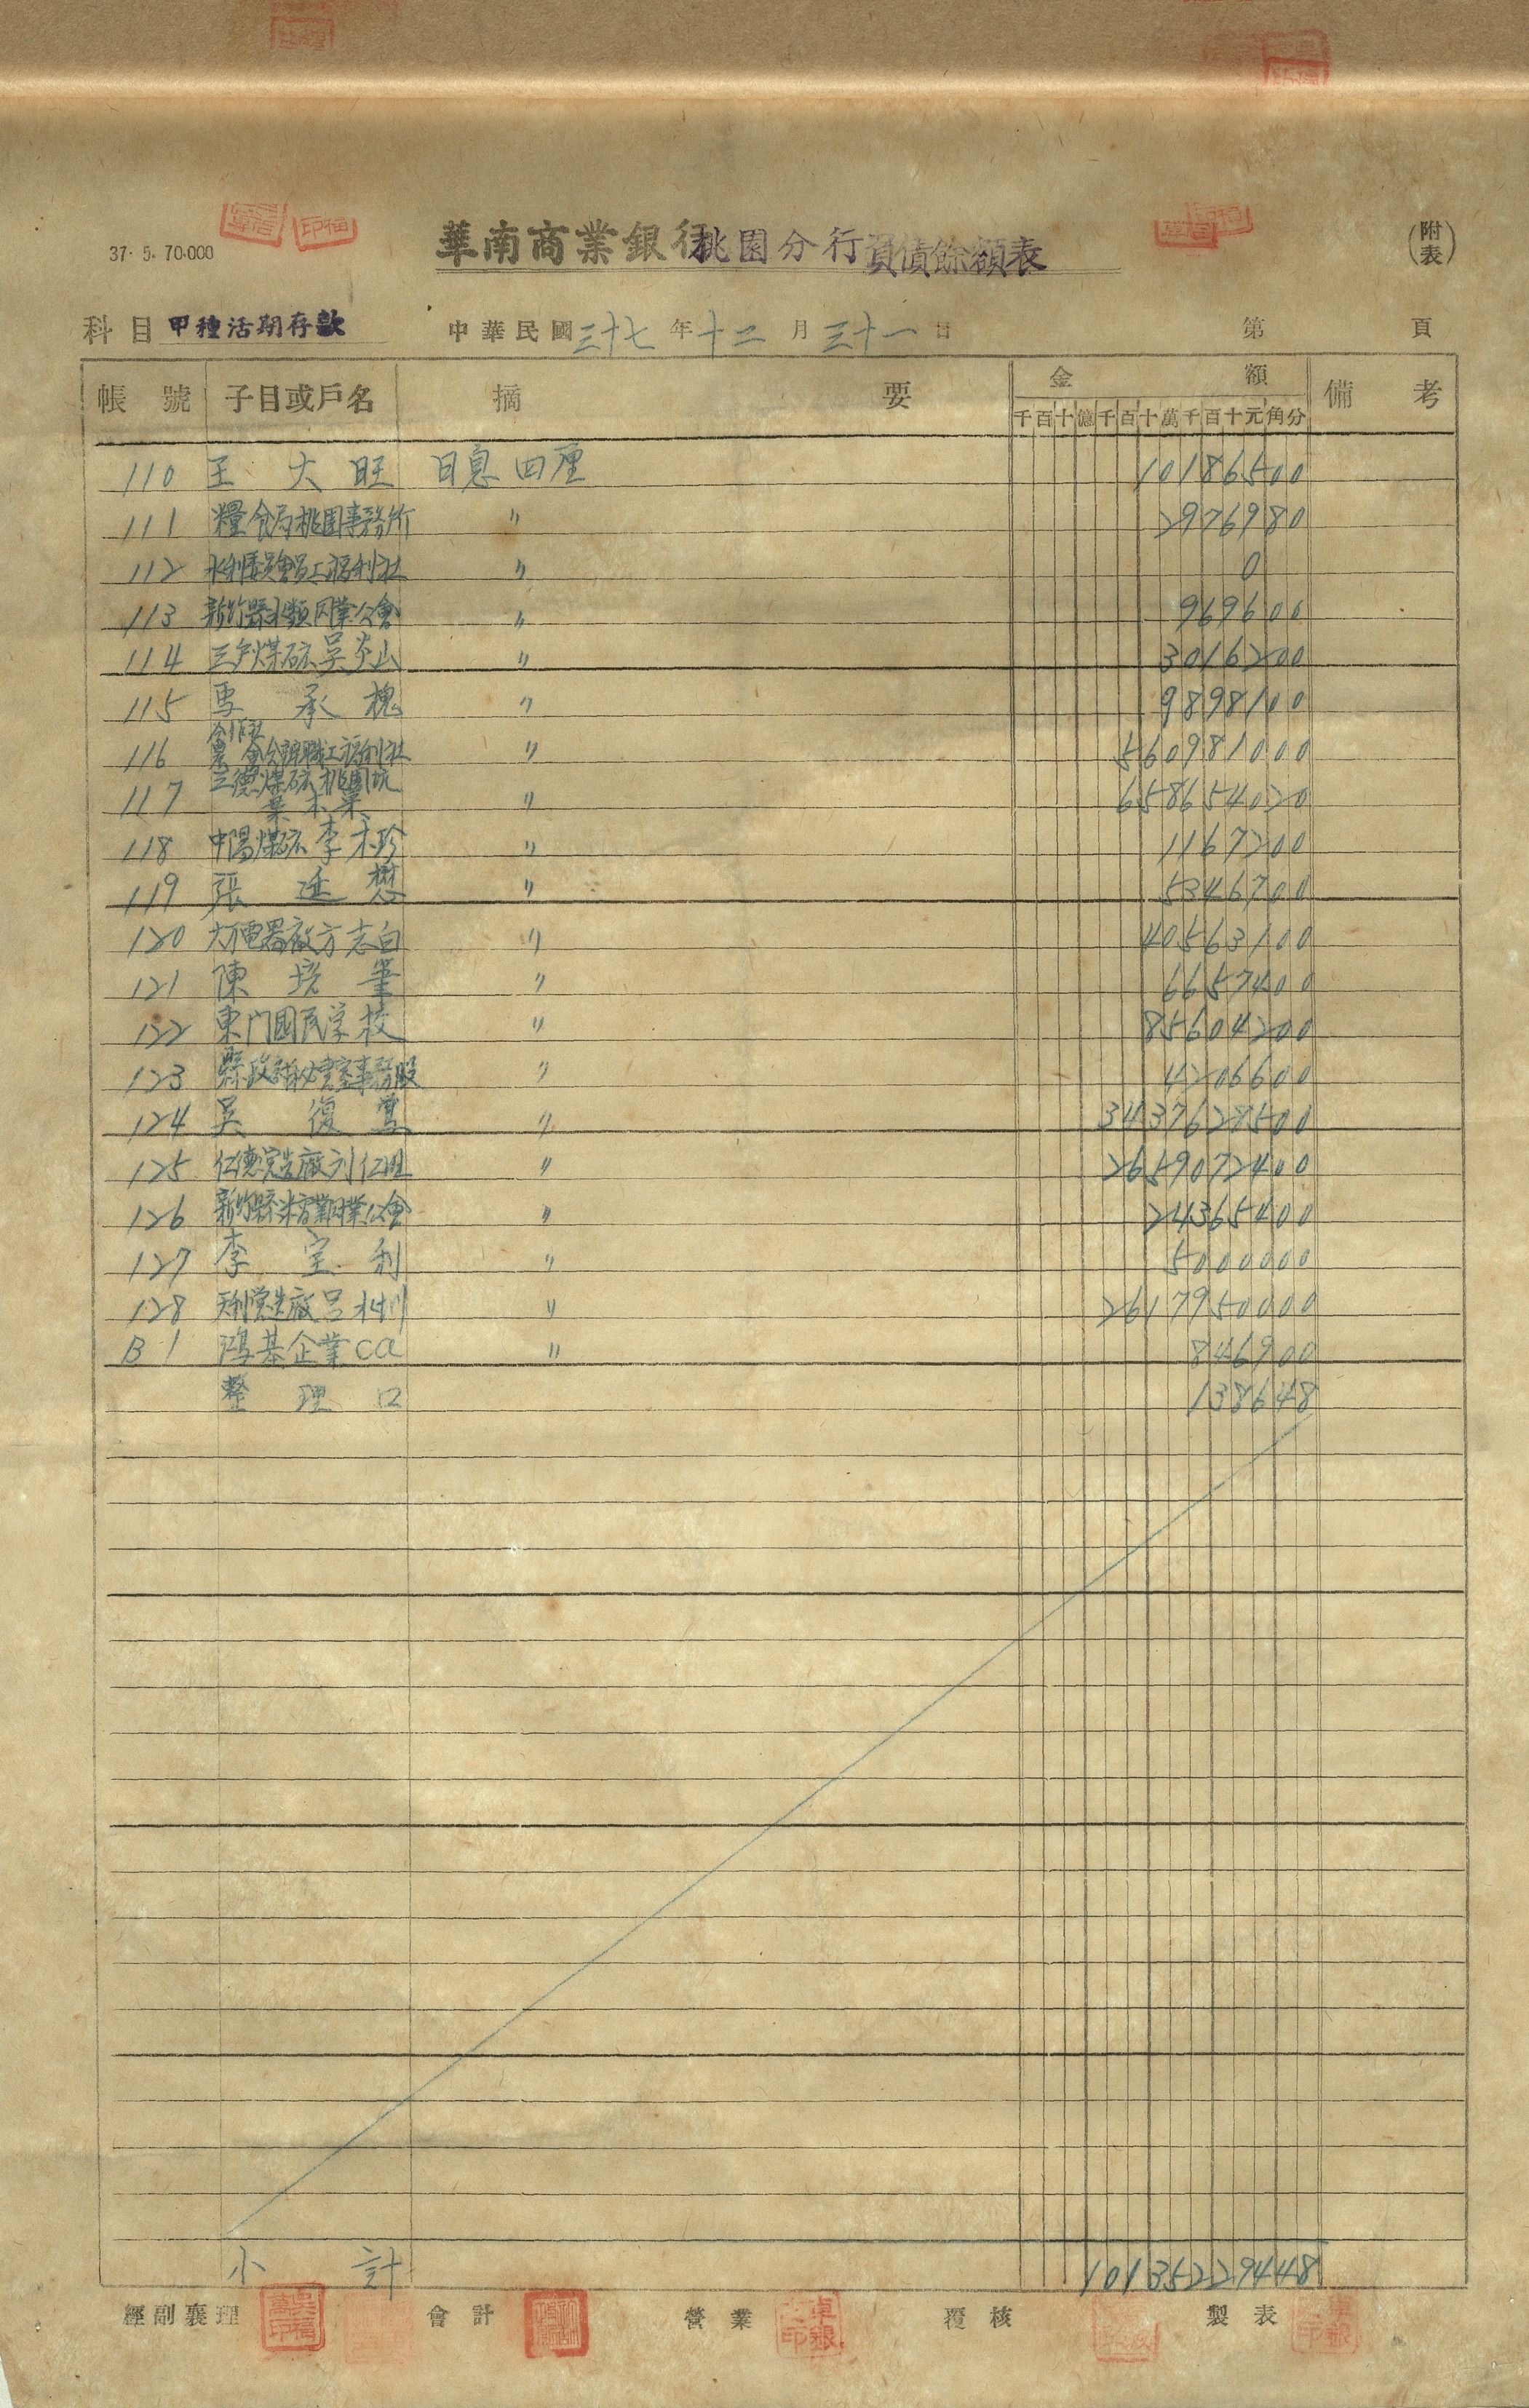 37. 5. 70.000
華南商業銀行桃園分行資債餘額表
(附表)
科目 甲種活期存款 中華民國三十七年十二月三十一日 第 頁
帳號 子目或戶名 摘要 金額 備考
千百十億千百十萬千百十元角分
110 王大旺 日息四厘 10186500
111 糧食局桃園事務所 〃 2976980
112 水利委員會員工福利社 〃 0
113 新竹縣 類同業公會 〃 969600
114 煤矿吳炎山 〃 3016200
115 承槐 〃 9898100
116 職工福利社 〃 560981000
117 三德煤矿桃園坑葉木 〃 658654020
118 中陽煤矿李木珍 〃 1167200
119 張 〃 5346700
120 電器廠方志白 〃 40563100
121 陳 〃 6657400
122 東门國民学校 〃 85604200
123 縣政府秘書室事務股 〃 4206600
124 吳復 〃 3437628500
125 仁德 廠刘仁旺 〃 2659072400
126 新竹縣 業同業公會 〃 24365400
127 李宝利 〃 5000000
128 廠呂水 〃 2617950000
B1 鴻基企業 〃 846900
整理口 138648
小計 10135229448
經副襄理 會計 營業 覆核 製表